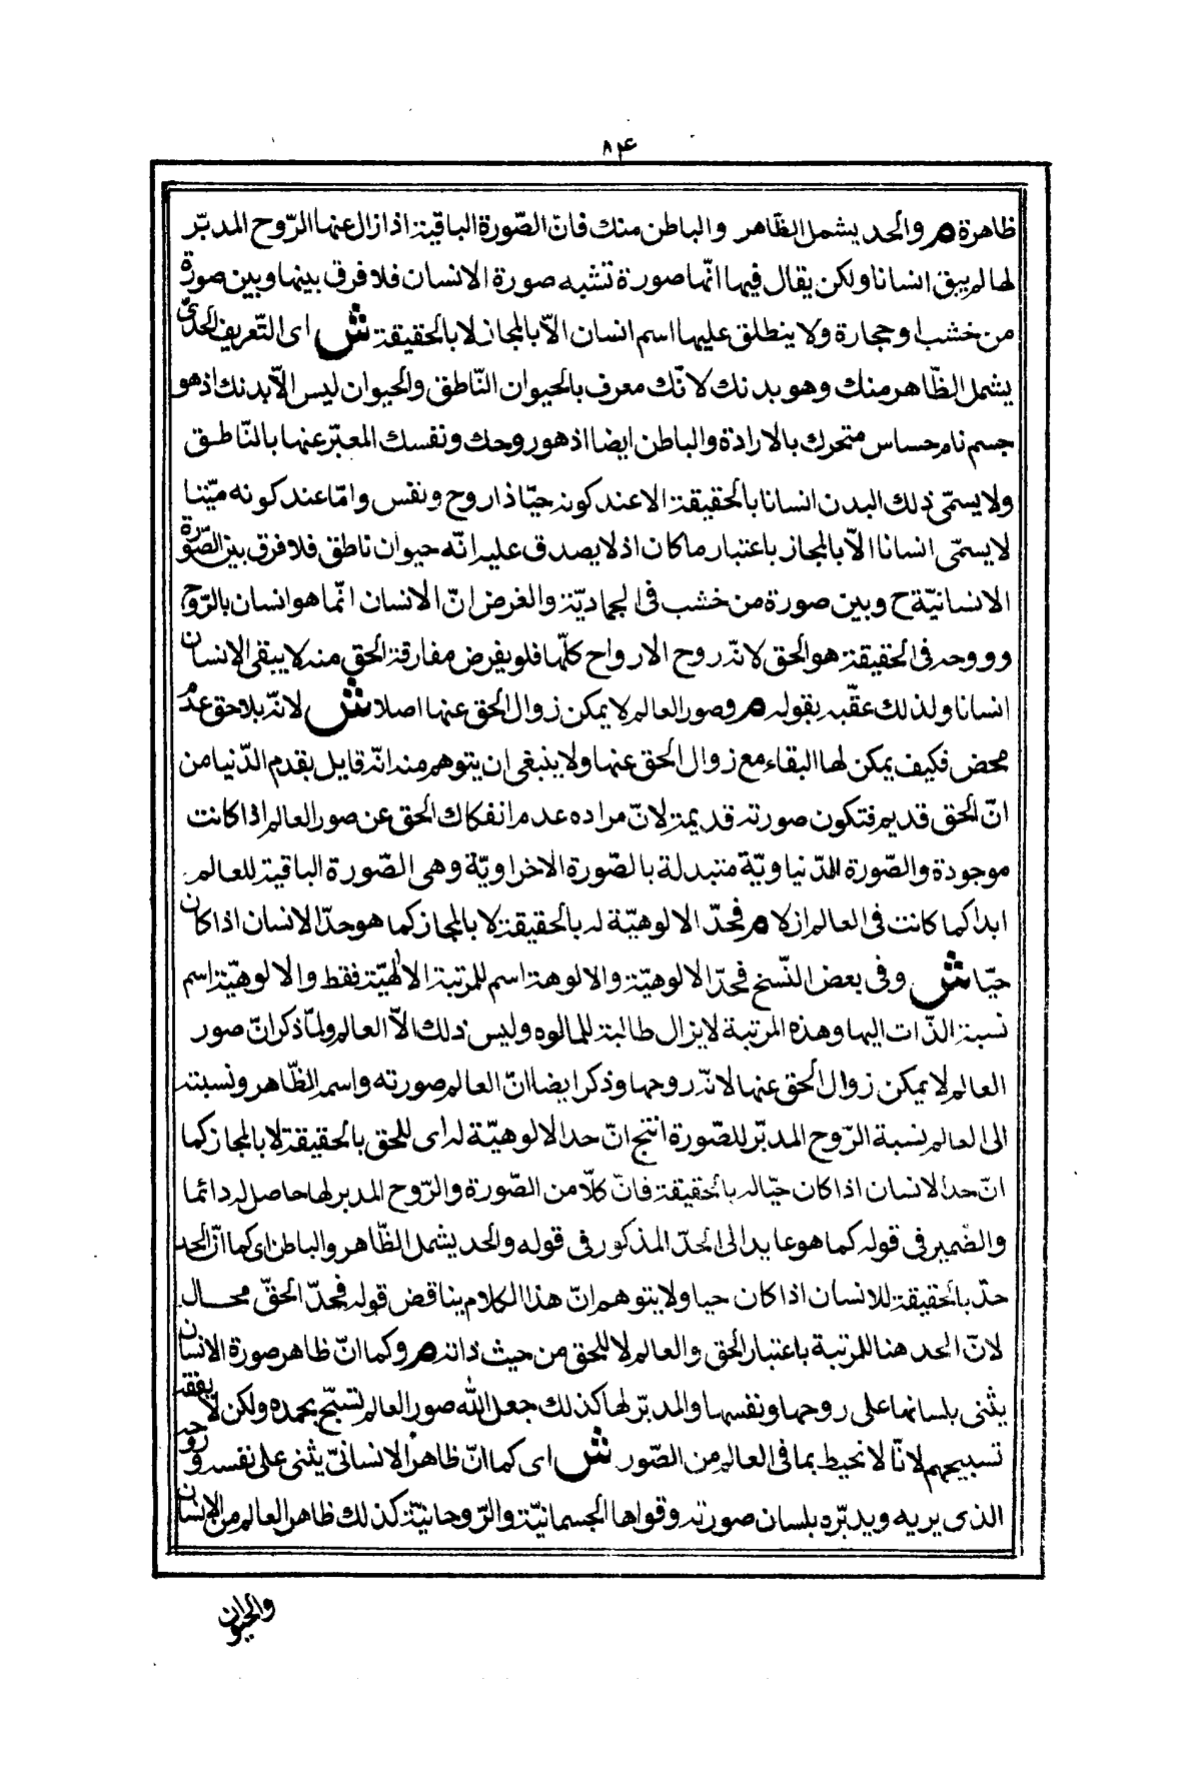 ۸۴
ظاهرة م والحد يشمل الظّاهر والباطن منك فانّ الصّورة الباقية اذا زال عنها الرّوح المدبّر
لها لم يبق انسانا ولكن يقال فيها انّها صورة تشبه صورة الانسان فلا فرق بينها وبين صورة
من خشب او حجارة ولا ينطلق عليها اسم انسان الّا بالمجاز لا بالحقيقة ش اى التّعريف الحدىّ
يشمل الظّاهر منك وهو بدنك لانّك معرف بالحيوان النّاطق والحيوان ليس الّا بدنك اذ هو
جسم نام حساس متحرك بالارادة والباطن ايضا اذ هو روحك ونفسك المعبّر عنها بالنّاطق
ولا يسمّى ذلك البدن انسانا بالحقيقة الا عند كونه حيّا ذا روح ونفس وامّا عند كونه ميّتا
لا يسمّى انسانا الّا بالمجاز باعتبار ما كان اذ لا يصدق عليه انّه حيوان ناطق فلا فرق بين الصّورة
الانسانيّة ح وبين صورة من خشب فى الجماديّة والغرض انّ الانسان انّما هو انسان بالرّوح
وروحه فى الحقيقة هو الحق لانّه روح الارواح كلّها فلو يفرض مفارقة الحق منه لا يبقى الانسان
انسانا ولذلك عقّبه بقوله م وصور العالم لا يمكن زوال الحق عنها اصلا ش لانّه بلا حق عدم
محض فكيف يمكن لها البقاء مع زوال الحق عنها ولا ينبغى ان يتوهم منه انّه قايل بقدم الدّنيا من
انّ الحق قديم فتكون صورته قديمة لانّ مراده عدم انفكاك الحق عن صور العالم اذا كانت
موجودة والصّورة الدّنياويّة متبدلة بالصّورة الاخراويّة وهى الصّورة الباقية للعالم
ابدا كما كانت فى العالم ازلا م فحدّ الالوهيّة له بالحقيقة لا بالمجاز كما هو حدّ الانسان اذا كان
حيّا ش وفى بعض النّسخ فحدّ الالوهيّة والالوهة اسم للمرتبة الالٰهيّة فقط والالوهيّة اسم
نسبة الذّات اليها وهذه المرتبة لا يزال طالبة للمالوه وليس ذلك الّا العالم ولمّا ذكر انّ صور
العالم لا يمكن زوال الحق عنها لانّه روحها وذكر ايضا انّ العالم صورته واسم الظّاهر ونسبته
الى العالم نسبة الرّوح المدبّر للصّورة انتج انّ حد الالوهيّة له اى للحق بالحقيقة لا بالمجاز كما
انّ حد الانسان اذا كان حيّا له بالحقيقة فانّ كلّا من الصّورة والرّوح المدبر لها حاصل له دائما
والضّمير فى قوله كما هو عايد الى الحدّ المذكور فى قوله والحد يشمل الظّاهر والباطن اى كما انّ الحد
حدّ بالحقيقة للانسان اذا كان حيا ولا يتوهم انّ هذا الكلام يناقض قوله فحدّ الحقّ محال
لانّ الحد هنا للمرتبة باعتبار الحق والعالم لا للحق من حيث ذاته م وكما انّ ظاهر صورة الانسان
يثنى بلسانها على روحها ونفسها والمدبّر لها كذلك جعل الله صور العالم تسبّح بحمده ولكن لا يفقه
تسبيحهم لانّا لا نحيط بما فى العالم من الصّور ش اى كما انّ ظاهر الانسانىّ يثنى على نفسه وروحه
الذى يربه ويدبّره بلسان صورته وقواها الجسمانيّة والرّوحانيّة كذلك ظاهر العالم من الانسان
والحيوان